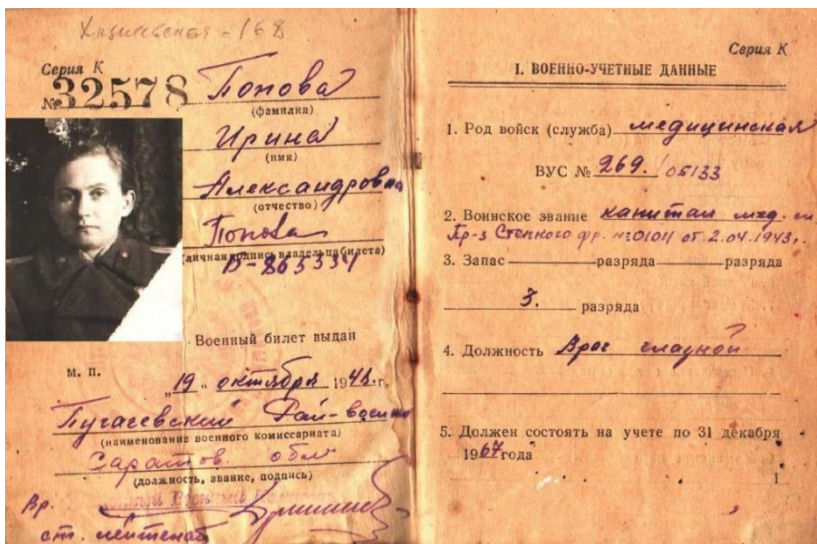 Серия К
№ 32578
Попова
(фамилия)
Ирина
(имя)
Александровна
(отчество)
Попова
(личная подпись владельца билета)
Военный билет выдан
М. П.
„19" октября 194 г.
Пугачевский Рай-
(наименование военного комиссариата)
Саратов. обл
(должность, звание, подпись)
Вр.
ст. лейтенант
Серия К
I. ВОЕННО-УЧЕТНЫЕ ДАННЫЕ
1. Род войск (служба) медицинская
ВУС № 269. / 05133
2. Воинское звание капитан мед. сл.
Пр-з Степного фр. №0104 от 2.04.1943г.
3. Запас разряда разряда
3. разряда
4. Должность Врач глазной
5. Должен состоять на учете по 31 декабря
1967 года
1